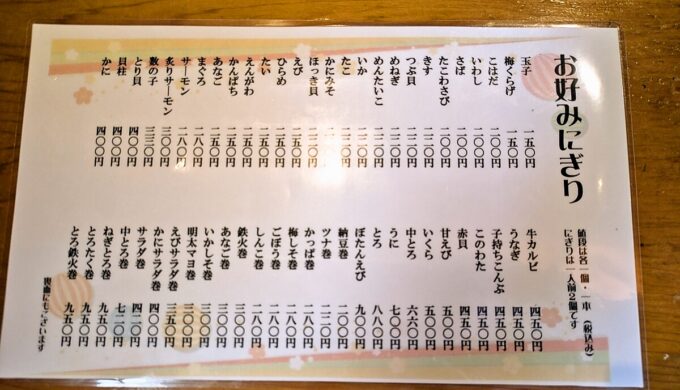 お好みにぎり
値段は各一個・一本（税込み）
にぎりは一人前2個です
玉子 一五〇円
梅くらげ 一五〇円
こはだ 二〇〇円
いわし 二〇〇円
さば 二〇〇円
たこわさび 二〇〇円
きす 二二〇円
つぶ貝 二二〇円
めねぎ 二二〇円
めんたいこ 二二〇円
いか 二二〇円
たこ
かにみそ
ほっき貝
えび 二五〇円
ひらめ 二五〇円
たい 二五〇円
えんがわ 二五〇円
かんぱち 二五〇円
あなご 二五〇円
まぐろ 二八〇円
サーモン 二八〇円
炙りサーモン 三〇〇円
数の子 三三〇円
とり貝 四〇〇円
貝柱 四〇〇円
かに 四〇〇円
牛カルビ 四五〇円
うなぎ 四五〇円
子持ちこんぶ 四五〇円
このわた 四五〇円
赤貝 四五〇円
甘えび 五〇〇円
いくら 五〇〇円
中とろ 六六〇円
うに 七〇〇円
とろ 八八〇円
ぼたんえび 九〇〇円
納豆巻 二〇〇円
ツナ巻 二二〇円
かっぱ巻 二八〇円
梅しそ巻 二八〇円
ごぼう巻 二八〇円
しんこ巻 二八〇円
鉄火巻 三〇〇円
あなご巻 三〇〇円
いかしそ巻 三〇〇円
明太マヨ巻 三〇〇円
えびサラダ巻 三五〇円
かにサラダ巻 三五〇円
サラダ巻 四二〇円
中とろ巻 七二〇円
ねぎとろ巻 九五〇円
とろたく巻 九五〇円
とろ鉄火巻 九五〇円
裏面にもございます